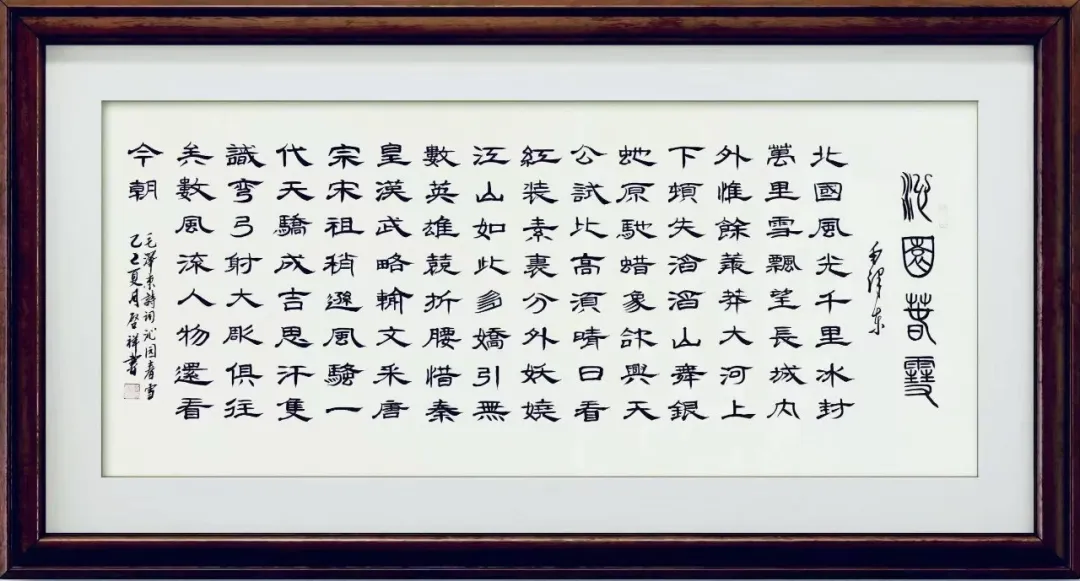 沁園春雪
毛澤東
北國風光千里冰封
萬里雪飄望長城內
外惟餘莽莽大河上
下頓失滔滔山舞銀
虵原馳蜡象欲與天
公試比高須晴日看
紅装素裹分外妖嬈
江山如此多嬌引無
數英雄競折腰惜秦
皇漢武略輸文采唐
宗宋祖稍遜風騷一
代天驕成吉思汗隻
識彎弓射大彫俱往
矣數風流人物還看
今朝
毛澤東詩詞沁园春雪
乙巳夏月啓祥書